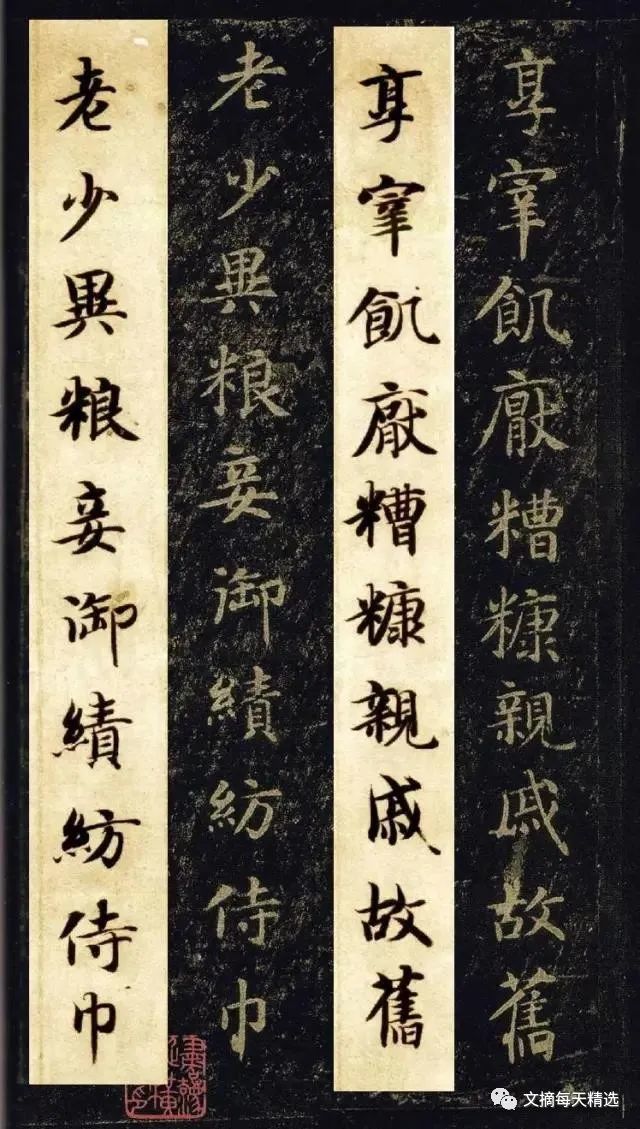 享宰飢厭糟糠親戚故舊
享宰飢厭糟糠親戚故舊
老少異粮妾御績紡侍巾
老少異粮妾御績紡侍巾
文摘每天精选